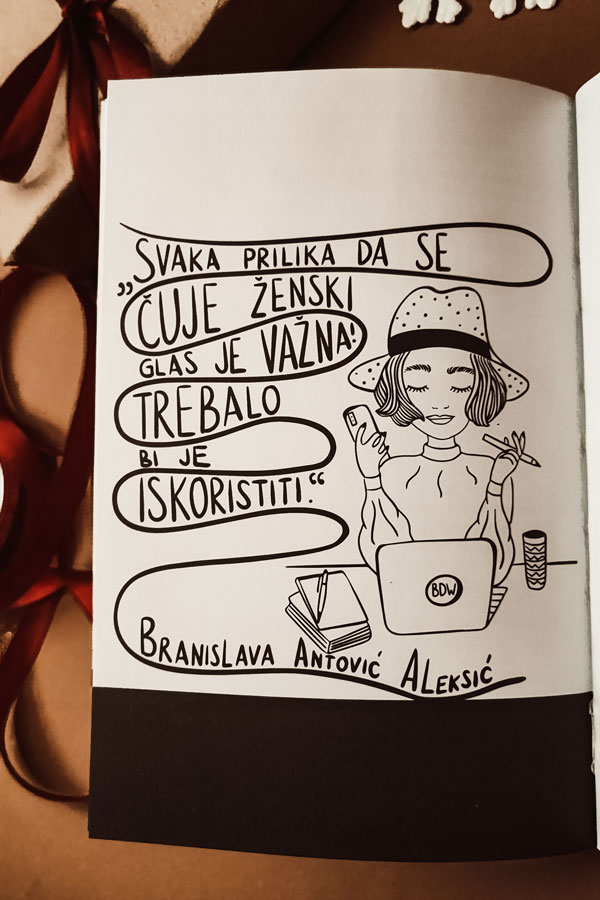 „SVAKA PRILIKA DA SE
ČUJE ŽENSKI
GLAS JE VAŽNA!
TREBALO
BI JE
ISKORISTITI.“
BDW
BRANISLAVA ANTOVIĆ ALEKSIĆ